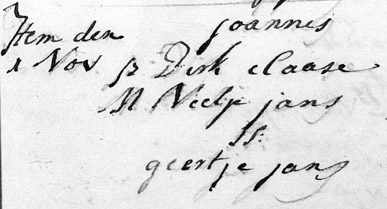 Item den joannes
1 Nov p Dirk claase
M Neeltje jans
ss:
geertje jans